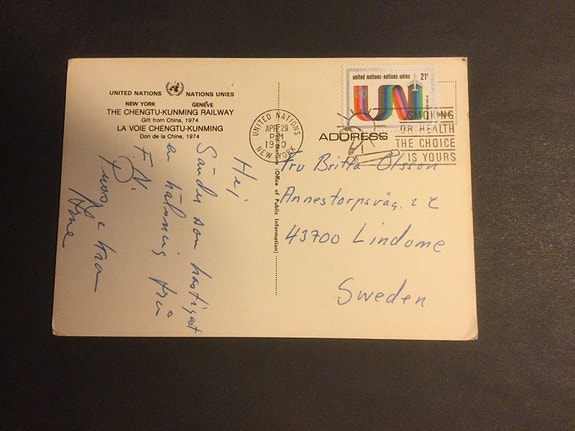 UNITED NATIONS NATIONS UNIES
NEW YORK GENÈVE
THE CHENGTU-KUNMING RAILWAY
Gift from China, 1974
LA VOIE CHENGTU-KUNMING
Don de la Chine, 1974
united nations-nations unies 21c
UN
UNITED NATIONS
APR 28
PM
1980
NEW YORK
SMOKING
OR HEALTH
THE CHOICE
IS YOURS
ADDRESS
(Office of Public Information)
Fru Britta Olsson
Annestorpsväg. 2 C
43700 Lindome
Sweden
Hej
Sänder som hastigast
en hälsning från
F N
Arne